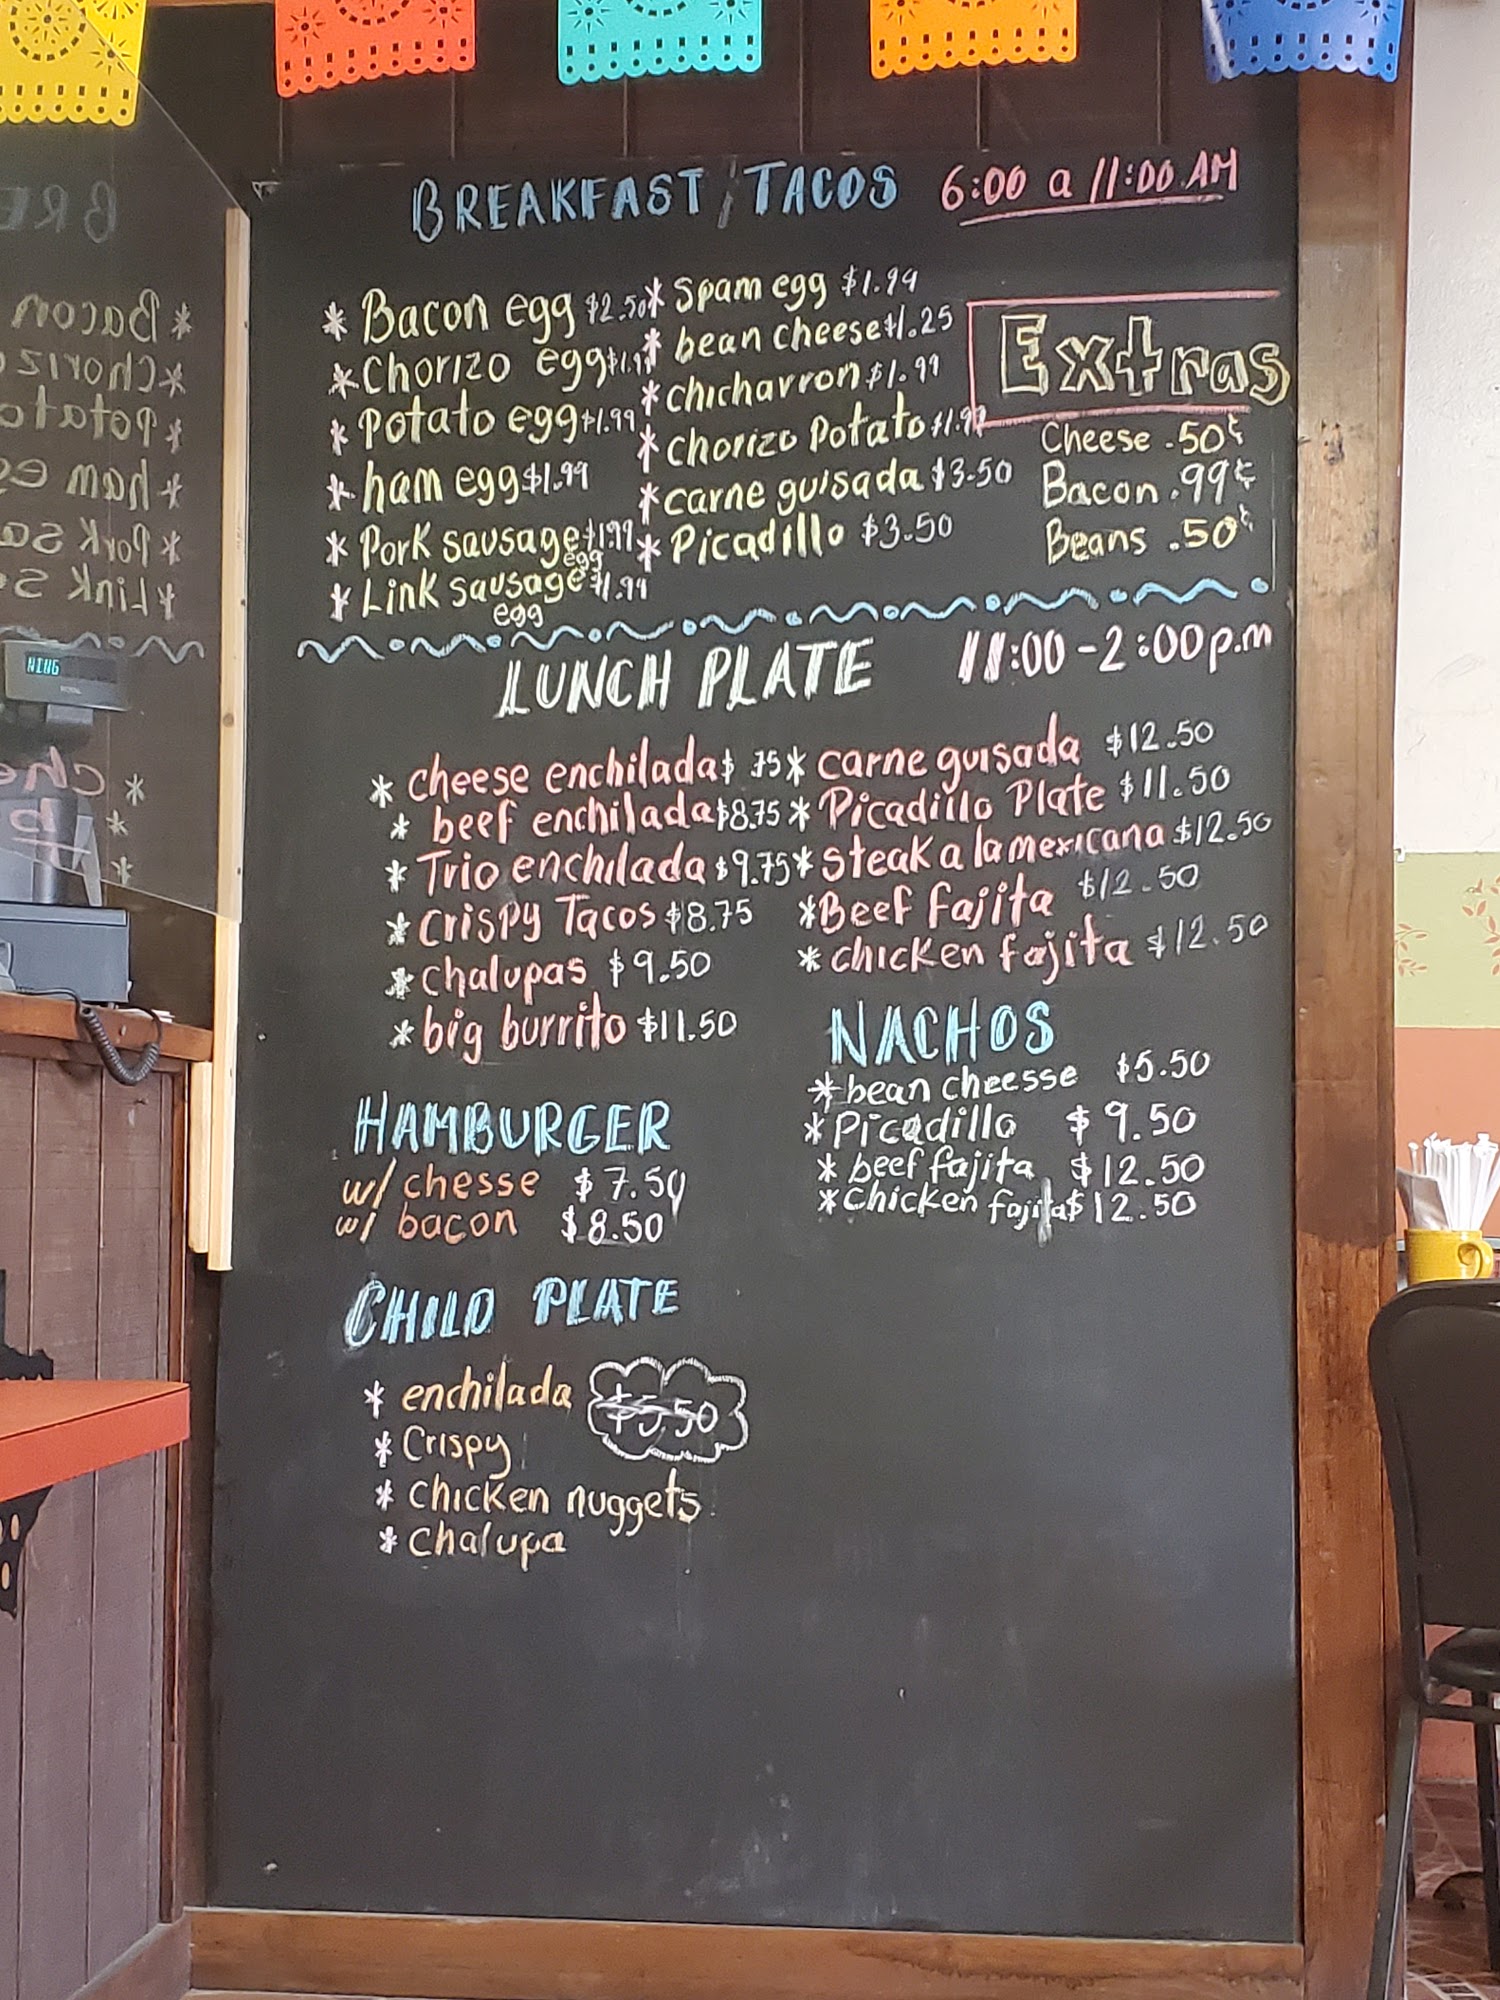 BREAKFAST/TACOS 6:00 a 11:00 AM
* Bacon egg $2.50
* Chorizo egg $1.99
* Potato egg $1.99
* ham egg $1.99
* Pork sausage egg $1.99
* Link sausage egg $1.99
* Spam egg $1.99
* bean cheese $1.25
* chicharron $1.99
* chorizo Potato $1.99
* carne guisada $3.50
* Picadillo $3.50
Extras
Cheese .50¢
Bacon .99¢
Beans .50¢
LUNCH PLATE 11:00-2:00p.m
* cheese enchilada $ .75
* beef enchilada $8.75
* Trio enchilada $9.75
* crispy Tacos $8.75
* chalupas $9.50
* big burrito $11.50
* carne guisada $12.50
* Picadillo Plate $11.50
* steak a la mexicana $12.50
* Beef fajita $12.50
* chicken fajita $12.50
NACHOS
* bean cheesse $5.50
* Picadillo $9.50
* beef fajita $12.50
* chicken fajita $12.50
HAMBURGER
w/ chesse $7.50
w/ bacon $8.50
CHILD PLATE
* enchilada
* Crispy
* chicken nuggets
* chalupa